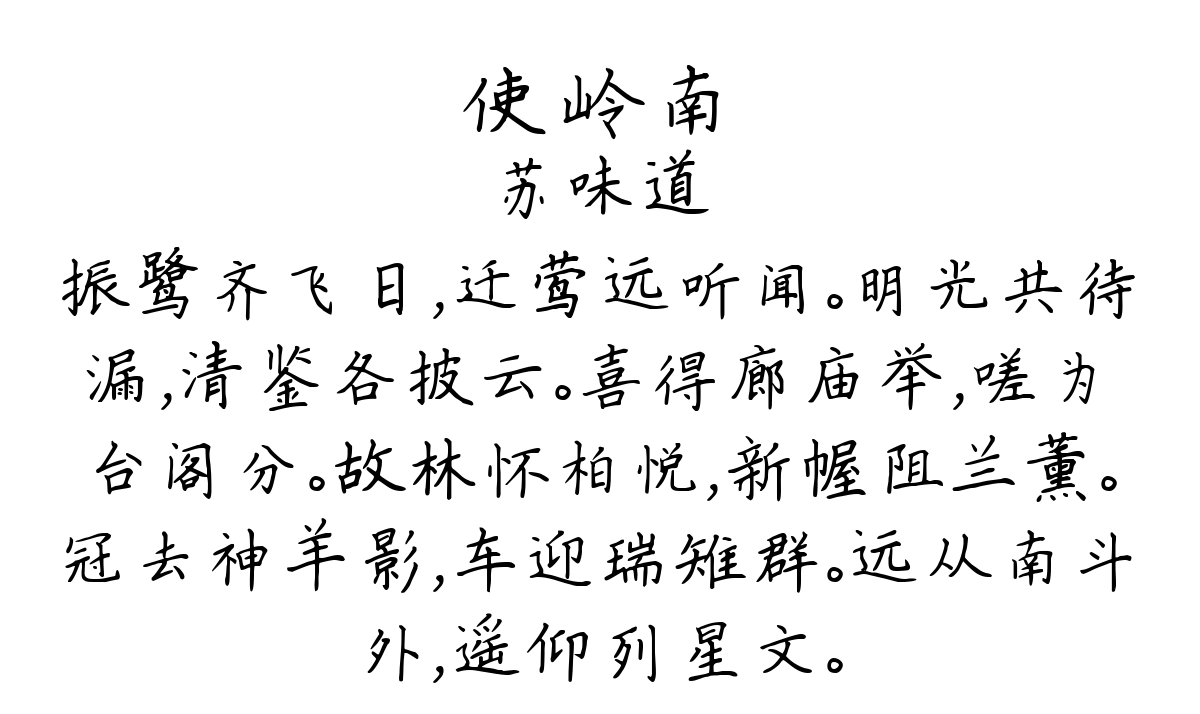 使岭南
苏味道
振鹭齐飞日,迁莺远听闻。明光共待
漏,清鉴各披云。喜得廊庙举,嗟为
台阁分。故林怀柏悦,新幄阻兰薰。
冠去神羊影,车迎瑞雉群。远从南斗
外,遥仰列星文。